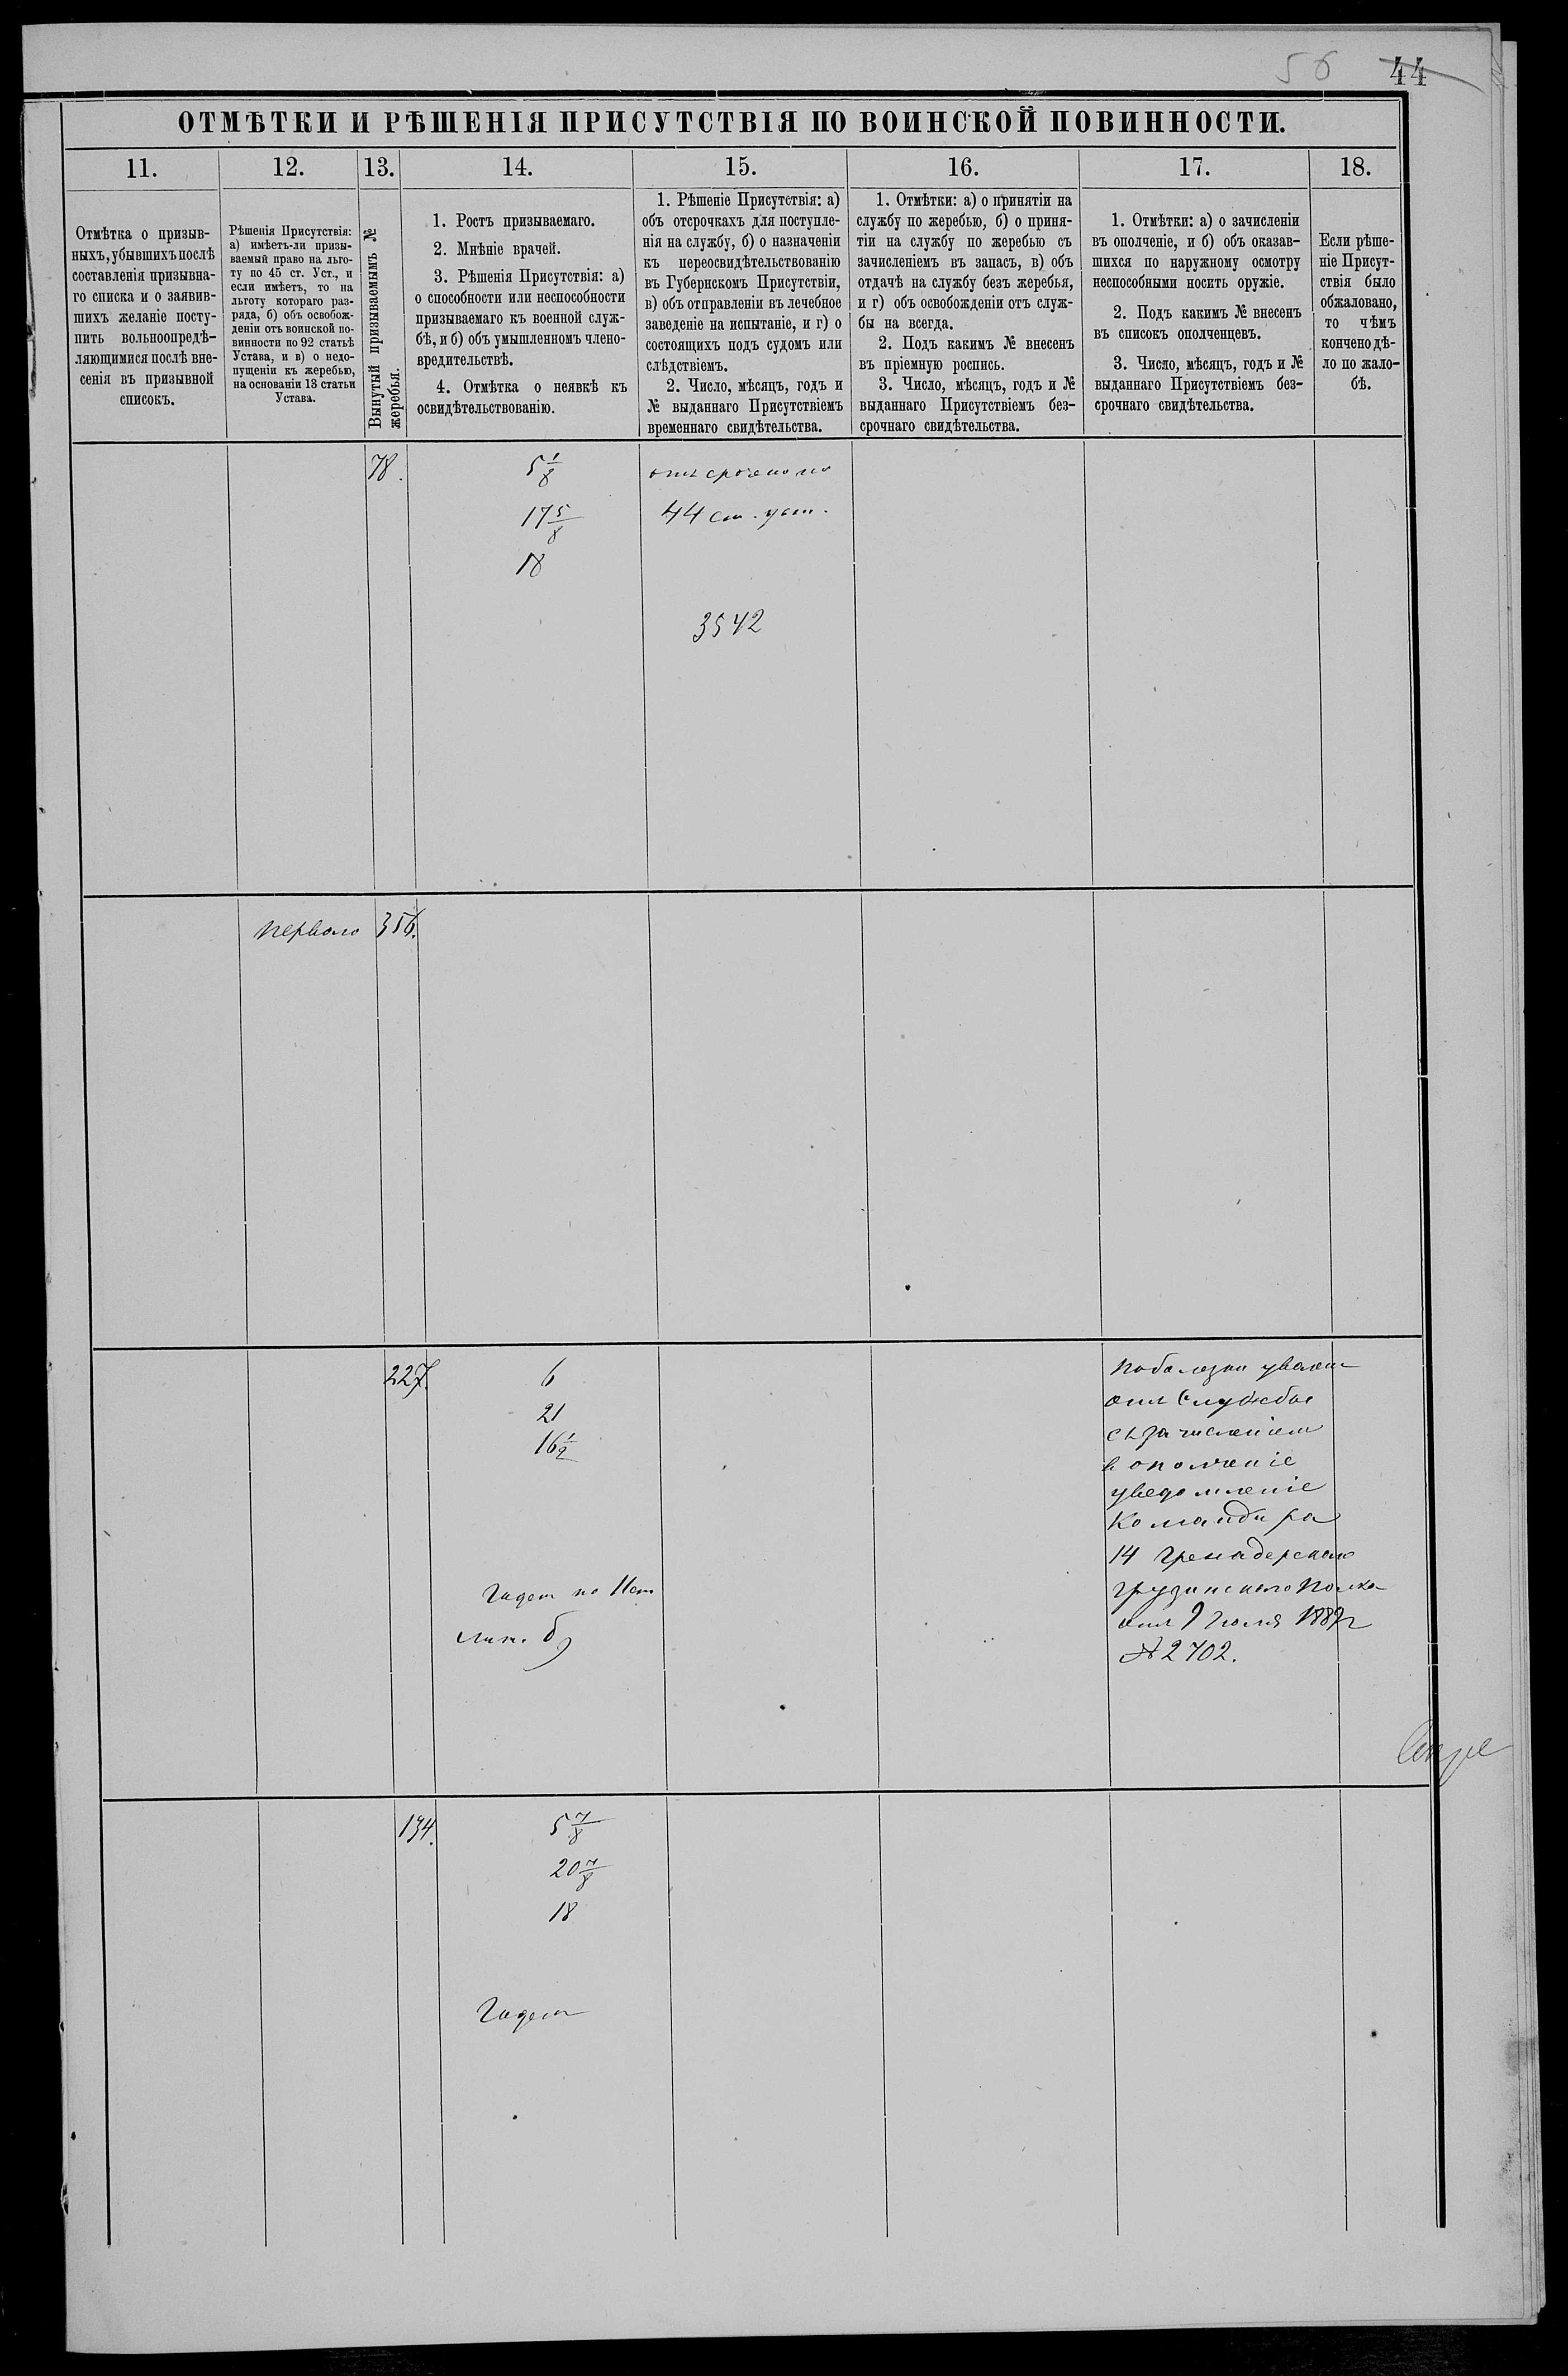 56 44
ОТМѢТКИ И РѢШЕНІЯ ПРИСУТСТВІЯ ПО ВОИНСКОЙ ПОВИННОСТИ.
11.
Отмѣтка о призыв-
ныхъ, убывшихъ послѣ
составленія призывна-
го списка и о заявив-
шихъ желаніе посту-
пить вольноопредѣ-
ляющимися послѣ вне-
сенія въ призывной
списокъ.
12.
Рѣшенія Присутствія:
а) имѣетъ-ли призы-
ваемый право на льго-
ту по 45 ст. Уст., и
если имѣетъ, то на
льготу котораго раз-
ряда, б) объ освобож-
деніи отъ воинской по-
винности по 92 статьѣ
Устава, и в) о недо-
пущеніи къ жеребью,
на основаніи 13 статьи
Устава.
13.
Вынутый призываемымъ №
жеребья.
14.
1. Ростъ призываемаго.
2. Мнѣніе врачей.
3. Рѣшенія Присутствія: а)
о способности или неспособности
призываемаго къ военной служ-
бѣ, и б) объ умышленномъ члено-
вредительствѣ.
4. Отмѣтка о неявкѣ къ
освидѣтельствованію.
15.
1. Рѣшеніе Присутствія: а)
объ отсрочкахъ для поступле-
нія на службу, б) о назначеніи
къ переосвидѣтельствованію
въ Губернскомъ Присутствіи,
в) объ отправленіи въ лечебное
заведеніе на испытаніе, и г) о
состоящихъ подъ судомъ или
слѣдствіемъ.
2. Число, мѣсяцъ, годъ и
№ выданнаго Присутствіемъ
временнаго свидѣтельства.
16.
1. Отмѣтки: а) о принятіи на
службу по жеребью, б) о приня-
тіи на службу по жеребью съ
зачисленіемъ въ запасъ, в) объ
отдачѣ на службу безъ жеребья,
и г) объ освобожденіи отъ служ-
бы на всегда.
2. Подъ какимъ № внесенъ
въ пріемную роспись.
3. Число, мѣсяцъ, годъ и №
выданнаго Присутствіемъ без-
срочнаго свидѣтельства.
17.
1. Отмѣтки: а) о зачисленіи
въ ополченіе, и б) объ оказав-
шихся по наружному осмотру
неспособными носить оружіе.
2. Подъ какимъ № внесенъ
въ списокъ ополченцевъ.
3. Число, мѣсяцъ, годъ и №
выданнаго Присутствіемъ без-
срочнаго свидѣтельства.
18.
Если рѣше-
ніе Присут-
ствія было
обжаловано,
то чѣмъ
кончено дѣ-
ло по жало-
бѣ.
78.
5 1/8
17 5/8
18
отсрочено по
44 ст. уст.
3542
перваго 356.
227.
6
21
16 1/2
Годен по
лит. б)
по болезни уволен
от Службы
съ зачислением
в ополчение
уведомленіе
Командира
14 гренадерскаго
грузинскаго полка
от 9 Июля 1889 г
№ 2702.
134.
5 7/8
20 7/8
18
Годен